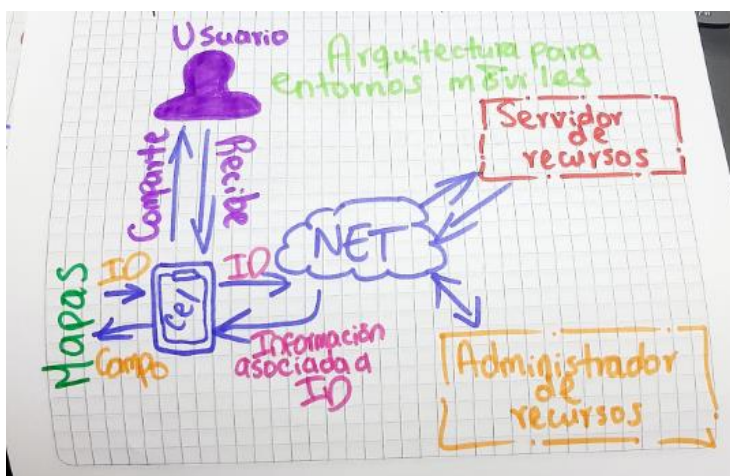 Usuario
Arquitectura para
entornos móviles
Servidor
de
recursos
Comparte
Recibe
NET
Mapas
ID
ID
Cel
Campo
Información
asociada a
ID
Administrador
de
recursos